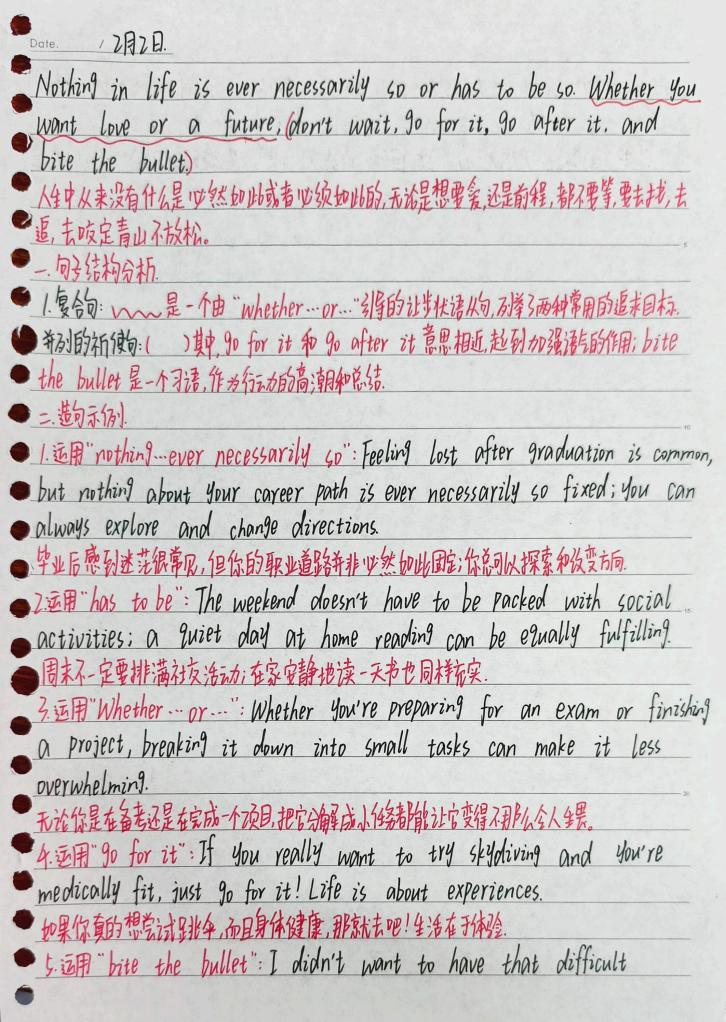 Date. / 2月2日.
Nothing in life is ever necessarily so or has to be so. Whether you
want love or a future, (don't wait, go for it, go after it. and
bite the bullet.)
人生中从来没有什么是必然如此或者必须如此的,无论是想要爱,还是前程,都不要等,要去找,去
追,去咬定青山不放松。
一.句子结构分析.
1.复合句: 是一个由"whether…or…"引导的让步状语从句,列举了两种常用的追求目标.
并列的祈使句:( )其中,go for it 和 go after it 意思相近,起到加强语气的作用;bite
the bullet 是一个习语,作为行动的高潮和总结.
二.造句示例.
1.运用"nothing…ever necessarily so": Feeling lost after graduation is common,
but nothing about your career path is ever necessarily so fixed; you can
always explore and change directions.
毕业后感到迷茫很常见,但你的职业道路并非必然如此固定;你总可以探索和改变方向.
2.运用"has to be": The weekend doesn't have to be packed with social
activities; a quiet day at home reading can be equally fulfilling.
周末不一定要排满社交活动;在家安静地读一天书也同样充实.
3.运用"Whether…or…": Whether you're preparing for an exam or finishing
a project, breaking it down into small tasks can make it less
overwhelming.
无论你是在备考还是在完成一个项目,把它分解成小任务都能让它变得不那么令人生畏。
4.运用"go for it": If you really want to try skydiving and you're
medically fit, just go for it! Life is about experiences.
如果你真的想尝试跳伞,而且身体健康,那就去吧!生活在于体验.
5.运用"bite the bullet": I didn't want to have that difficult